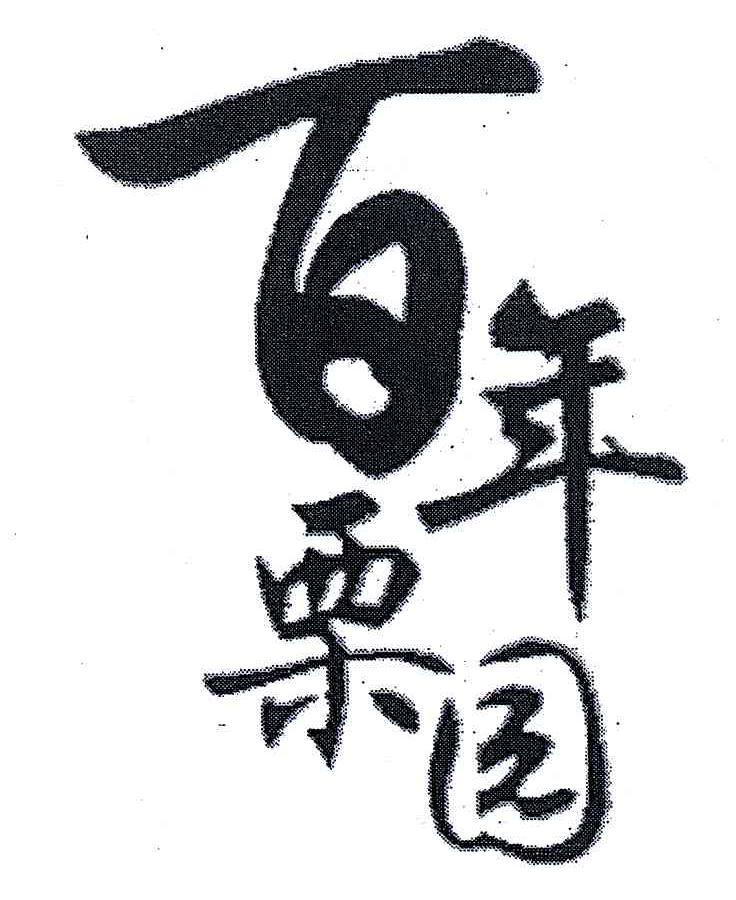 百年栗园